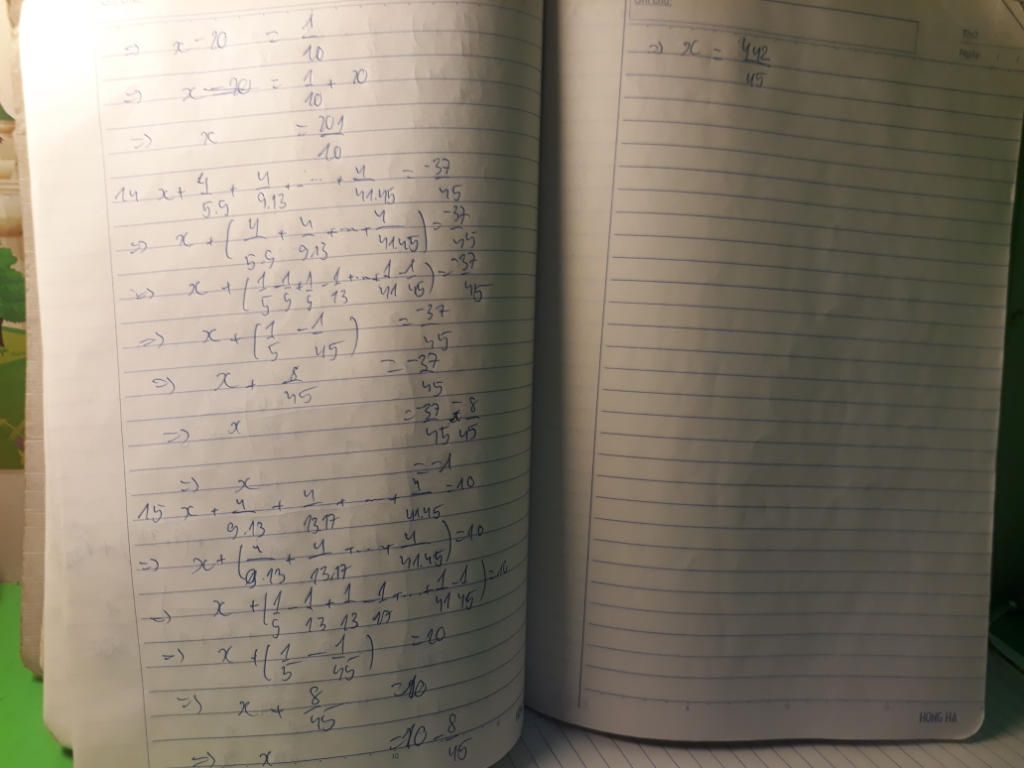 => x - 20 = 1/10
=> x - 20 = 1/10 + 20
=> x = 201/10
14 x + 4/5.9 + 4/9.13 + ... + 4/41.45 = -37/45
=> x + (4/5.9 + 4/9.13 + ... + 4/41.45) = -37/45
=> x + (1/5 - 1/9 + 1/9 - 1/13 + ... + 1/41 - 1/45) = -37/45
=> x + (1/5 - 1/45) = -37/45
=> x + 8/45 = -37/45
=> x = -37/45 - 8/45
=> x = -1
15 x + 4/9.13 + 4/13.17 + ... + 4/41.45 = 10
=> x + (4/9.13 + 4/13.17 + ... + 4/41.45) = 10
=> x + (1/5 - 1/13 + 1/13 - 1/17 + ... + 1/41 - 1/45) = 10
=> x + (1/5 - 1/45) = 10
=> x + 8/45 = 10
=> x = 10 - 8/45
Thứ
Ngày
=> x = 442/45
HONG HA